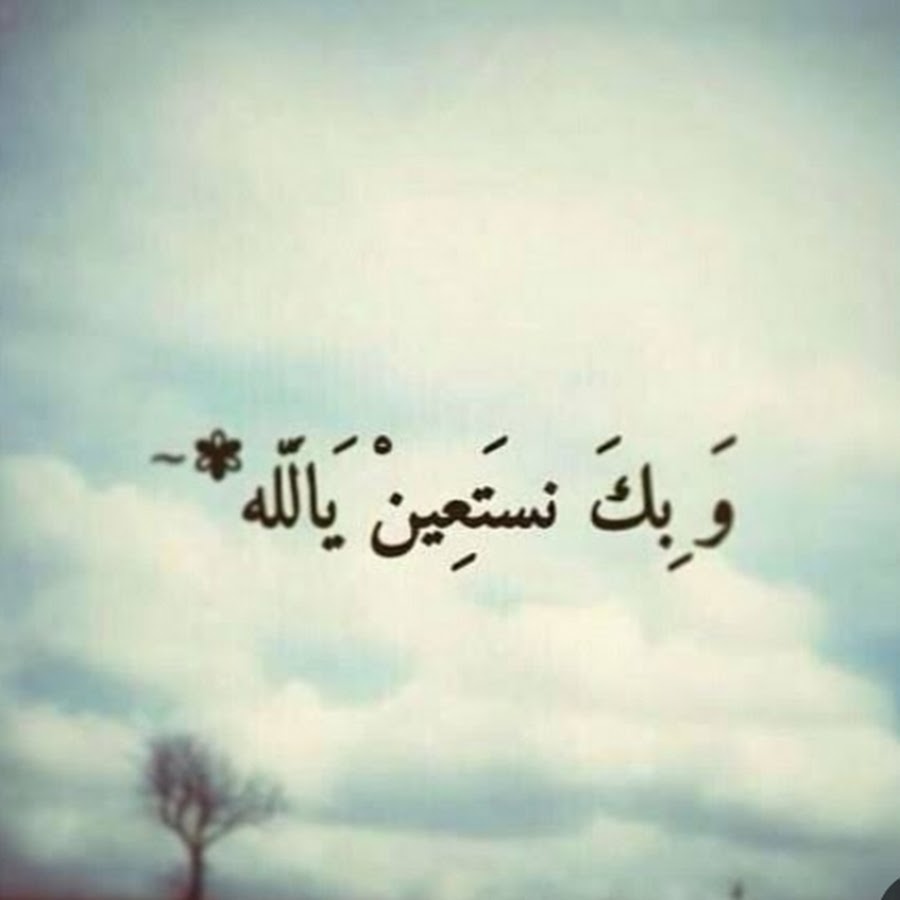 وَ بِكَ نستَعِينْ يَاللّه❃~